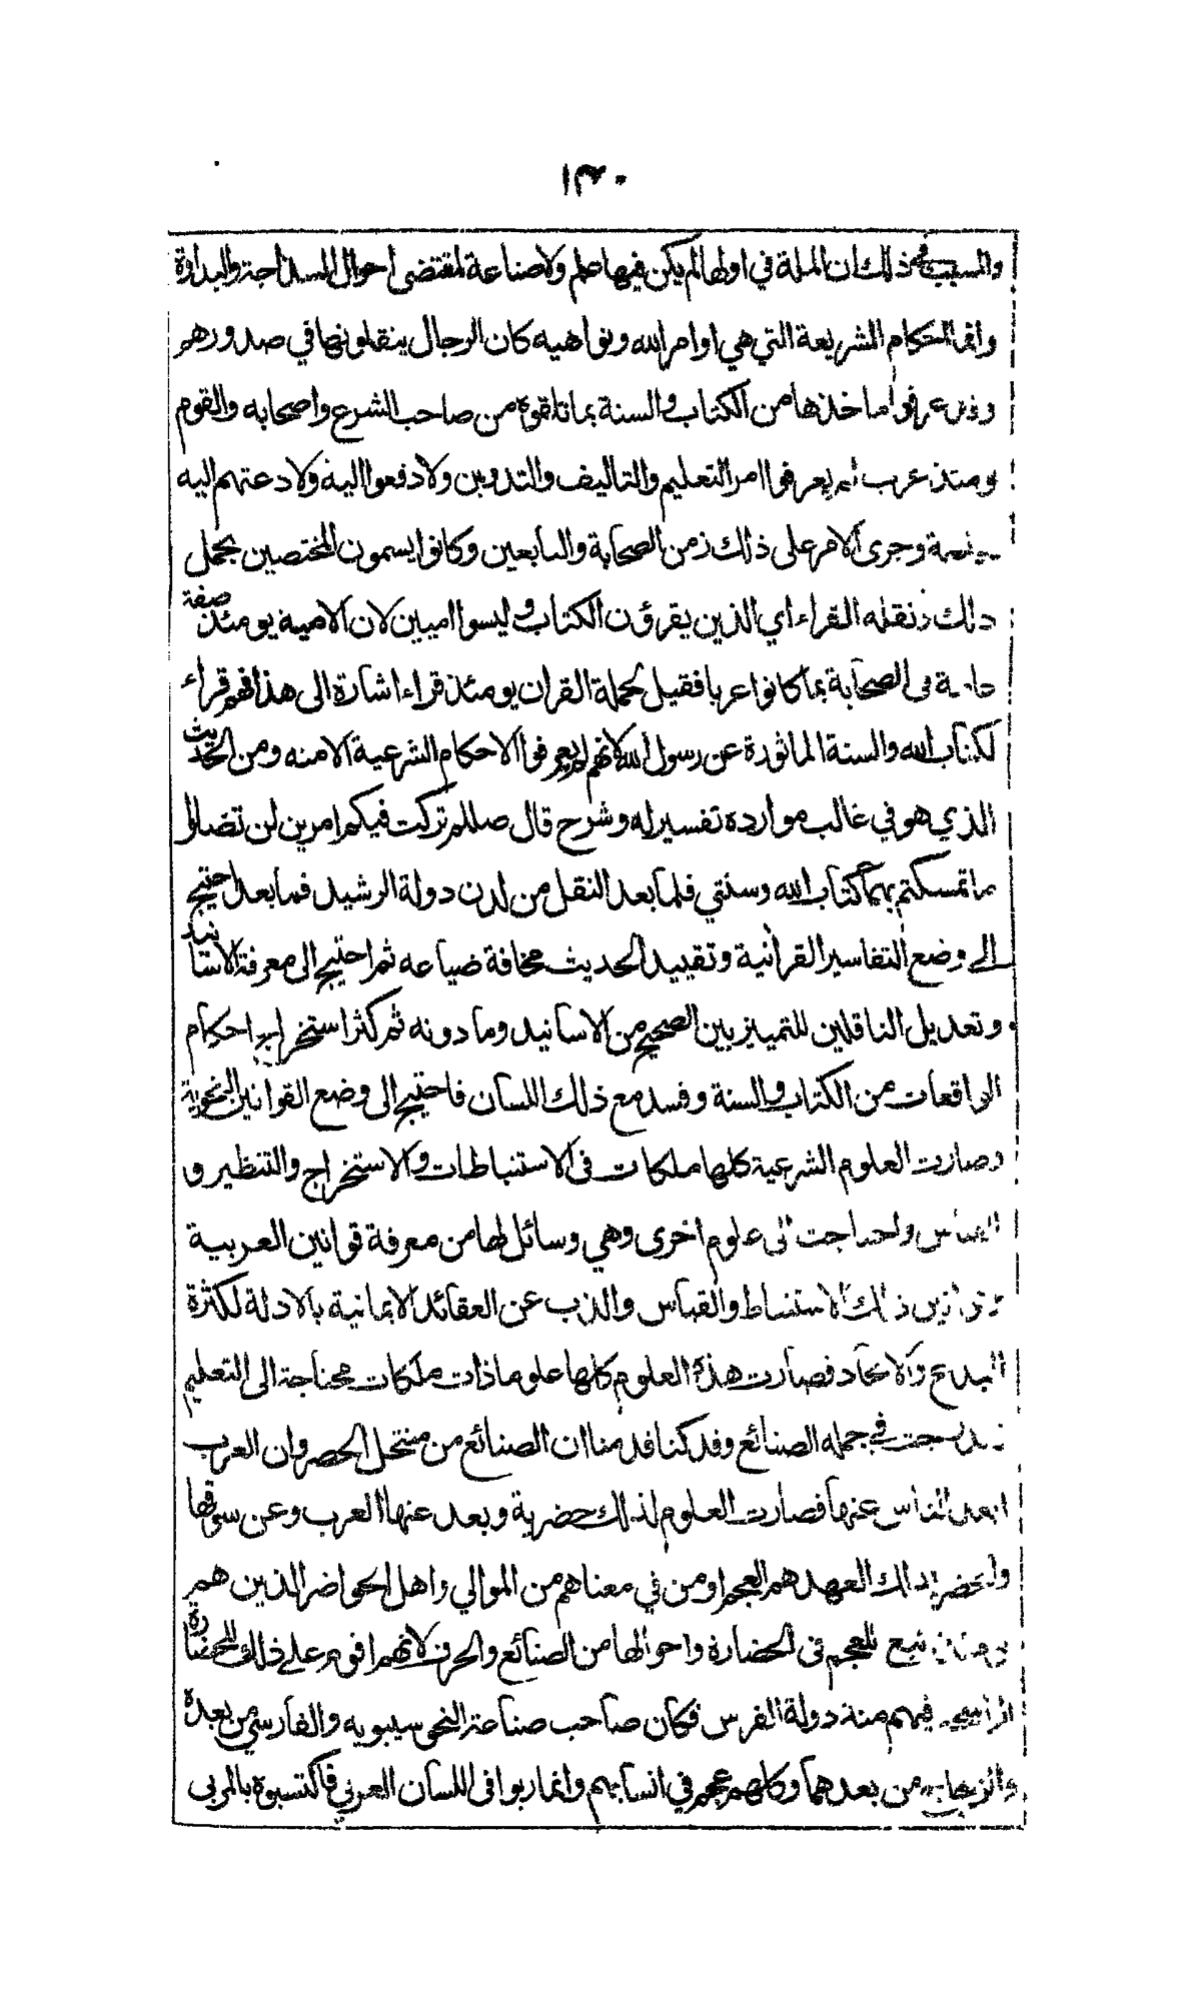 ١٣٠
والسبب في ذلك ان الملة في اولها لم يكن فيها علم ولا صناعة لمقتضى احوال السذاجة والبداوة
وانما احكام الشريعة التي هي اوامر الله ونواهيه كان الرجال ينقلونها في صدورهم
وقد عرفوا ماخذها من الكتاب والسنة بما تلقوه من صاحب الشرع واصحابه والقوم
يومئذ عرب لم يعرفوا امر التعليم والتاليف والتدوين ولا دفعوا اليه ولا دعتهم اليه
وجرى الامر على ذلك زمن الصحابة والتابعين وكانوا يسمون المختصين بحمل
ذلك ونقله القراء اي الذين يقرؤن الكتاب وليسوا اميين لان الامية يومئذ صفة
عامة في الصحابة بما كانوا عربا فقيل لحملة القران يومئذ قراء اشارة الى هذا فهم قراء
لكتاب الله والسنة الماثورة عن رسول الله لانهم لم يعرفوا الاحكام الشرعية الا منه ومن الحديث
الذي هو في غالب موارده تفسير له وشرح قال صللم تركت فيكم امرين لن تضلوا
ما تمسكتم بهما كتاب الله وسنتي فلما بعد النقل من لدن دولة الرشيد فما بعد احتيج
الى وضع التفاسير القرانية وتقييد الحديث مخافة ضياعه ثم احتيج الى معرفة الاسانيد
وتعديل الناقلين للتمييز بين الصحيح من الاسانيد وما دونه ثم كثر استخراج احكام
الواقعات من الكتاب والسنة وفسد مع ذلك اللسان فاحتيج الى وضع القوانين النحوية
وصارت العلوم الشرعية كلها ملكات في الاستنباطات والاستخراج والتنظير و
القياس واحتاجت الى علوم اخرى وهي وسائل لها من معرفة قوانين العربية
وقوانين ذلك الاستنباط والقياس والذب عن العقائد الايمانية بالادلة لكثرة
البدع والالحاد فصارت هذه العلوم كلها علوما ذات ملكات محتاجة الى التعليم
فاندرجت في جملة الصنائع وقد كنا قدمنا ان الصنائع من منتحل الحضر وان العرب
ابعد الناس عنها فصارت العلوم لذلك حضرية وبعد عنها العرب وعن سوقها
والحضر لذلك العهد هم العجم او من في معناهم من الموالي واهل الحواضر الذين هم
يومئذ تبع للعجم في الحضارة واحوالها من الصنائع والحرف لانهم اقوم على ذلك للحضارة
الراسخة فيهم منذ دولة الفرس فكان صاحب صناعة النحو سيبويه والفارسي من بعده
والزجاج من بعدهما وكلهم عجم في انسابهم وانما ربوا في اللسان العربي فاكتسبوه بالمربى